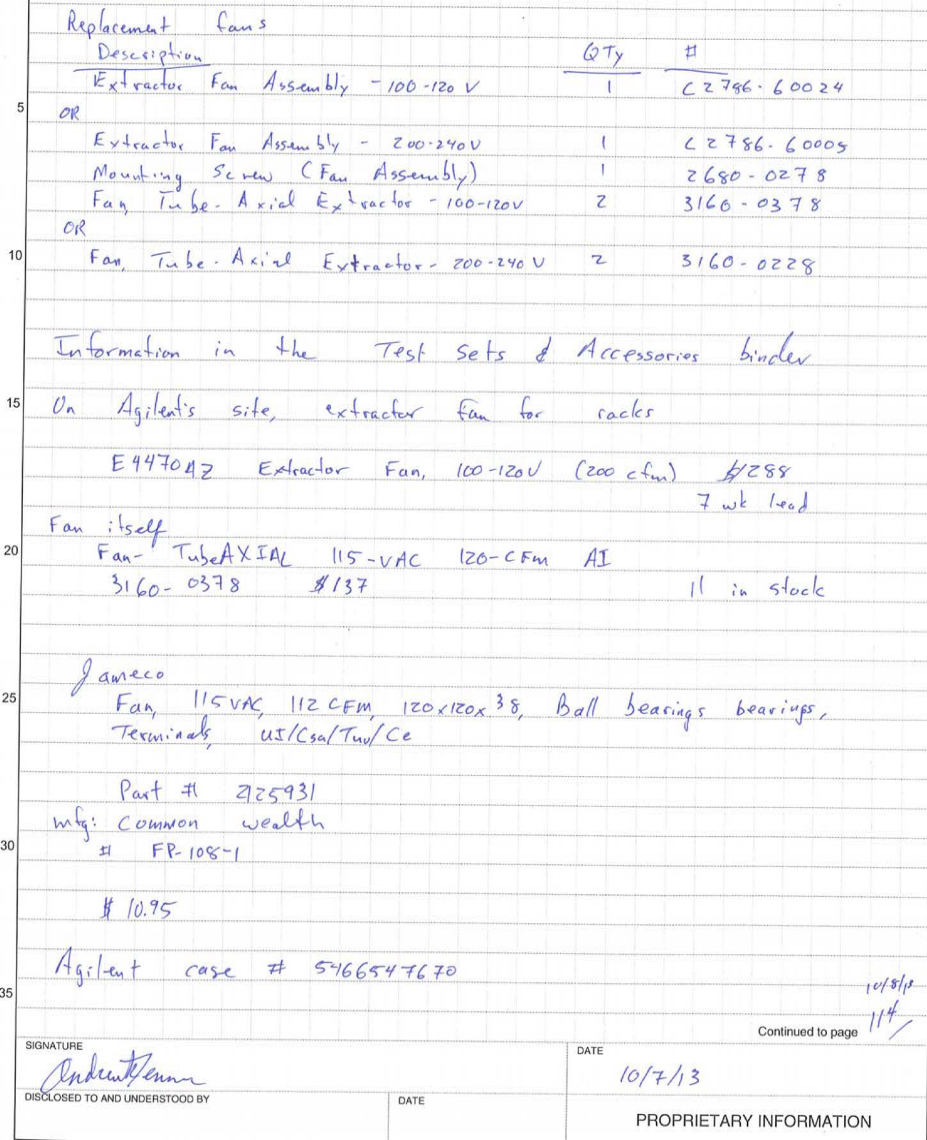 Replacement fans
Description QTy #
Extractor Fan Assembly - 100-120 V 1 C2786-60024
5
OR
Extractor Fan Assembly - 200-240V 1 C2786-60005
Mounting Screw (Fan Assembly) 1 2680-0278
Fan, Tube-Axial Extractor - 100-120V 2 3160-0378
OR
10 Fan, Tube-Axial Extractor - 200-240 V 2 3160-0228
Information in the Test Sets & Accessories binder
15 On Agilent's site, extractor fan for racks
E4470AZ Extractor Fan, 100-120V (200 cfm) $1288
7 wk lead
Fan itself
20 Fan- TubeAXIAL 115-VAC 120-CFm AI
3160-0378 $137 11 in stock
Jameco
25 Fan, 115VAC, 112 CFM, 120x120x38, Ball bearings bearings,
Terminals, UI/Csa/Tuv/Ce
Part # 2125931
mfg: Common wealth
30 # FP-108-1
$ 10.95
Agilent case # 5466547670
35 10/8/13
Continued to page 114
SIGNATURE DATE
10/7/13
DISCLOSED TO AND UNDERSTOOD BY DATE
PROPRIETARY INFORMATION